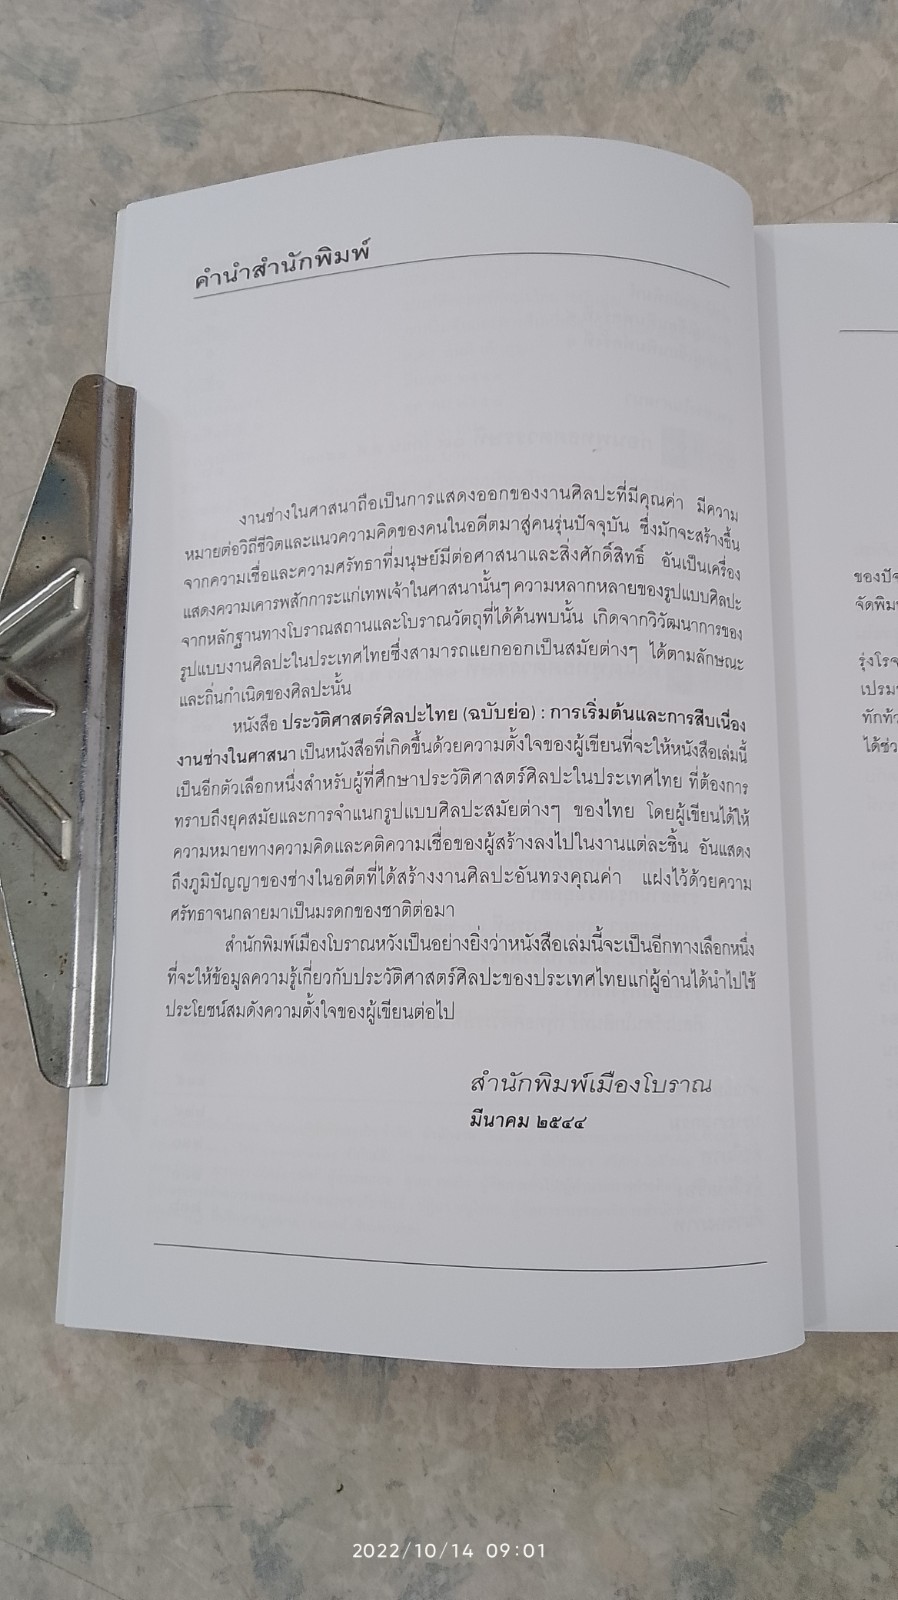 คำนำสำนักพิมพ์
งานช่างในศาสนาถือเป็นการแสดงออกของงานศิลปะที่มีคุณค่า มีความ
หมายต่อวิถีชีวิตและแนวความคิดของคนในอดีตมาสู่คนรุ่นปัจจุบัน ซึ่งมักจะสร้างขึ้น
จากความเชื่อและความศรัทธาที่มนุษย์มีต่อศาสนาและสิ่งศักดิ์สิทธิ์ อันเป็นเครื่อง
แสดงความเคารพสักการะแก่เทพเจ้าในศาสนานั้นๆ ความหลากหลายของรูปแบบศิลปะ
จากหลักฐานทางโบราณสถานและโบราณวัตถุที่ได้ค้นพบนั้น เกิดจากวิวัฒนาการของ
รูปแบบงานศิลปะในประเทศไทยซึ่งสามารถแยกออกเป็นสมัยต่างๆ ได้ตามลักษณะ
และถิ่นกำเนิดของศิลปะนั้น
หนังสือ ประวัติศาสตร์ศิลปะไทย (ฉบับย่อ) : การเริ่มต้นและการสืบเนื่อง
งานช่างในศาสนา เป็นหนังสือที่เกิดขึ้นด้วยความตั้งใจของผู้เขียนที่จะให้หนังสือเล่มนี้
เป็นอีกตัวเลือกหนึ่งสำหรับผู้ที่ศึกษาประวัติศาสตร์ศิลปะในประเทศไทย ที่ต้องการ
ทราบถึงยุคสมัยและการจำแนกรูปแบบศิลปะสมัยต่างๆ ของไทย โดยผู้เขียนได้ให้
ความหมายทางความคิดและคติความเชื่อของผู้สร้างลงไปในงานแต่ละชิ้น อันแสดง
ถึงภูมิปัญญาของช่างในอดีตที่ได้สร้างงานศิลปะอันทรงคุณค่า แฝงไว้ด้วยความ
ศรัทธาจนกลายมาเป็นมรดกของชาติต่อมา
สำนักพิมพ์เมืองโบราณหวังเป็นอย่างยิ่งว่าหนังสือเล่มนี้จะเป็นอีกทางเลือกหนึ่ง
ที่จะให้ข้อมูลความรู้เกี่ยวกับประวัติศาสตร์ศิลปะของประเทศไทยแก่ผู้อ่านได้นำไปใช้
ประโยชน์สมดังความตั้งใจของผู้เขียนต่อไป
สำนักพิมพ์เมืองโบราณ
มีนาคม ๒๕๔๔
ของปัจ
จัดพิม
รุ่งโรจ
เปรม
ทักท้ว
ได้ช่ว
2022/10/14 09:01